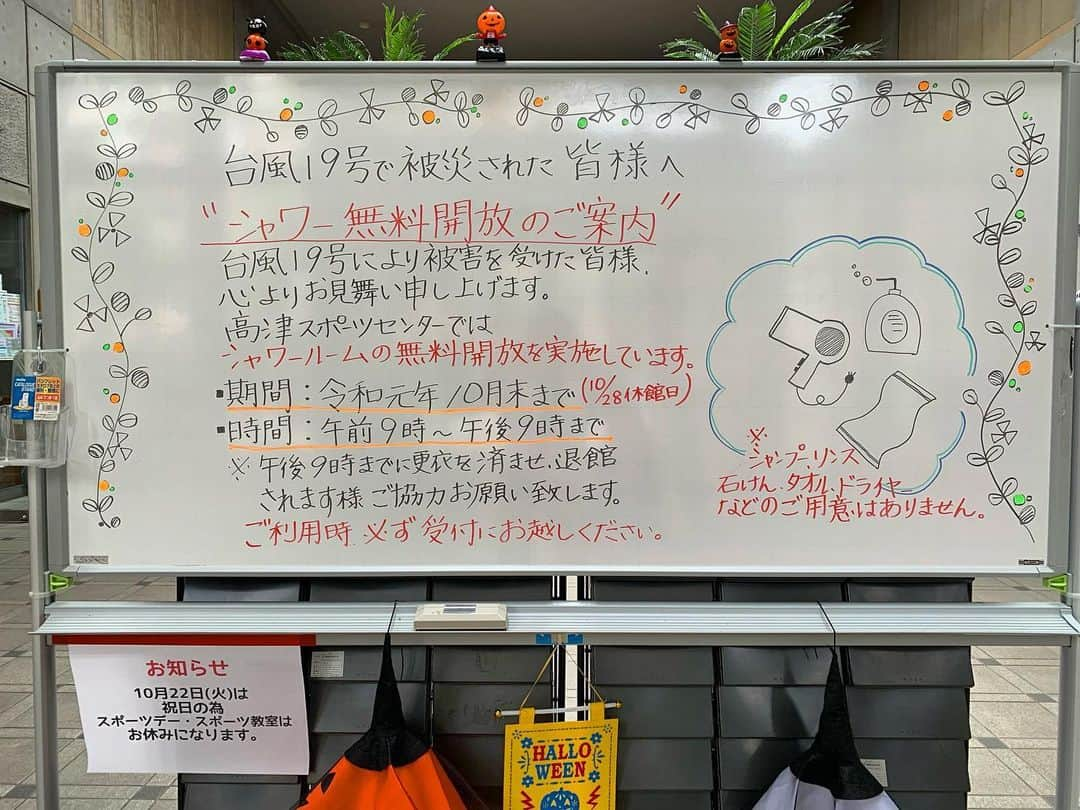 台風19号で被災された皆様へ
"シャワー無料開放のご案内"
台風19号により被害を受けた皆様、
心よりお見舞い申し上げます。
高津スポーツセンターでは
シャワールームの無料開放を実施しています。
▪期間：令和元年10月末まで(10/28休館日)
▪時間：午前9時～午後9時まで
※午後9時までに更衣を済ませ、退館
されます様ご協力お願い致します。
ご利用時、必ず受付にお越しください。
※
シャンプー、リンス
石けん、タオル、ドライヤ
などのご用意はありません。
お知らせ
10月22日(火)は
祝日の為
スポーツデー・スポーツ教室は
お休みになります。
HALLO
WEEN